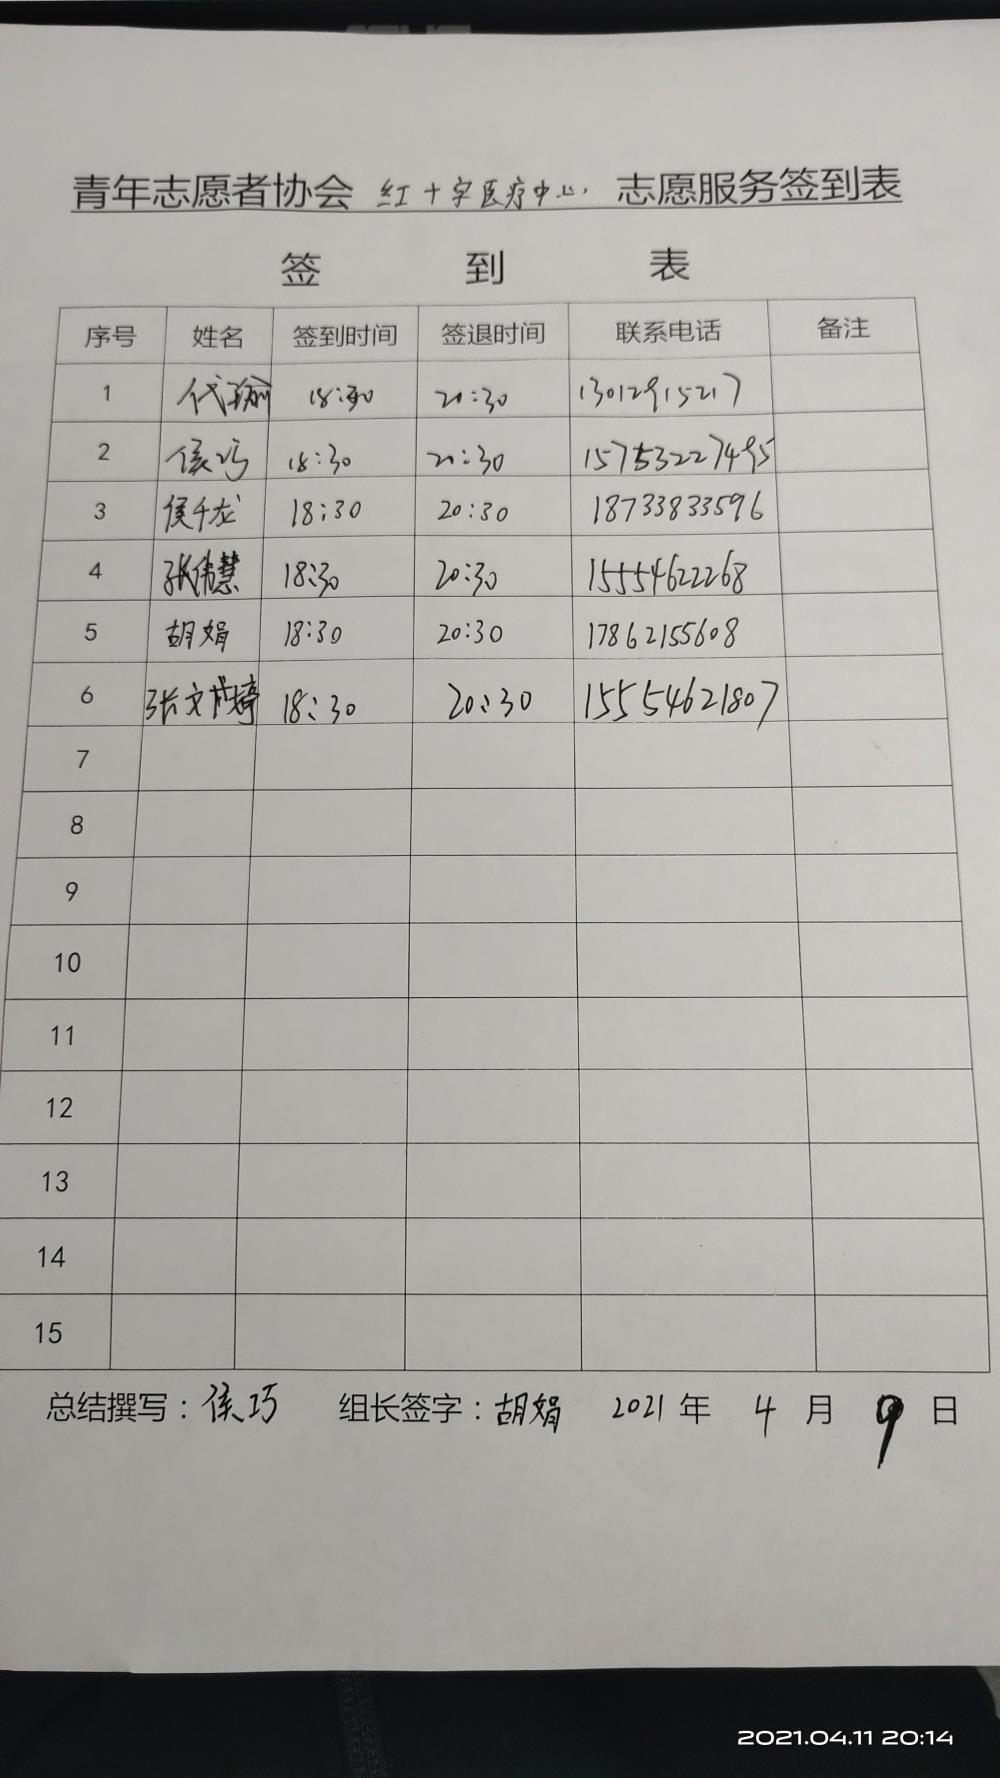 青年志愿者协会 红十字医疗中心 志愿服务签到表
签 到 表
序号 姓名 签到时间 签退时间 联系电话 备注
1 代瑜 18:30 20:30 13012915217
2 侯巧 18:30 20:30 15753227495
3 侯千龙 18:30 20:30 18733833596
4 张伟慧 18:30 20:30 15554622268
5 胡娟 18:30 20:30 17862155608
6 张文婷 18:30 20:30 15554621807
7
8
9
10
11
12
13
14
15
总结撰写：侯巧 组长签字：胡娟 2021 年 4 月 9 日
2021.04.11 20:14